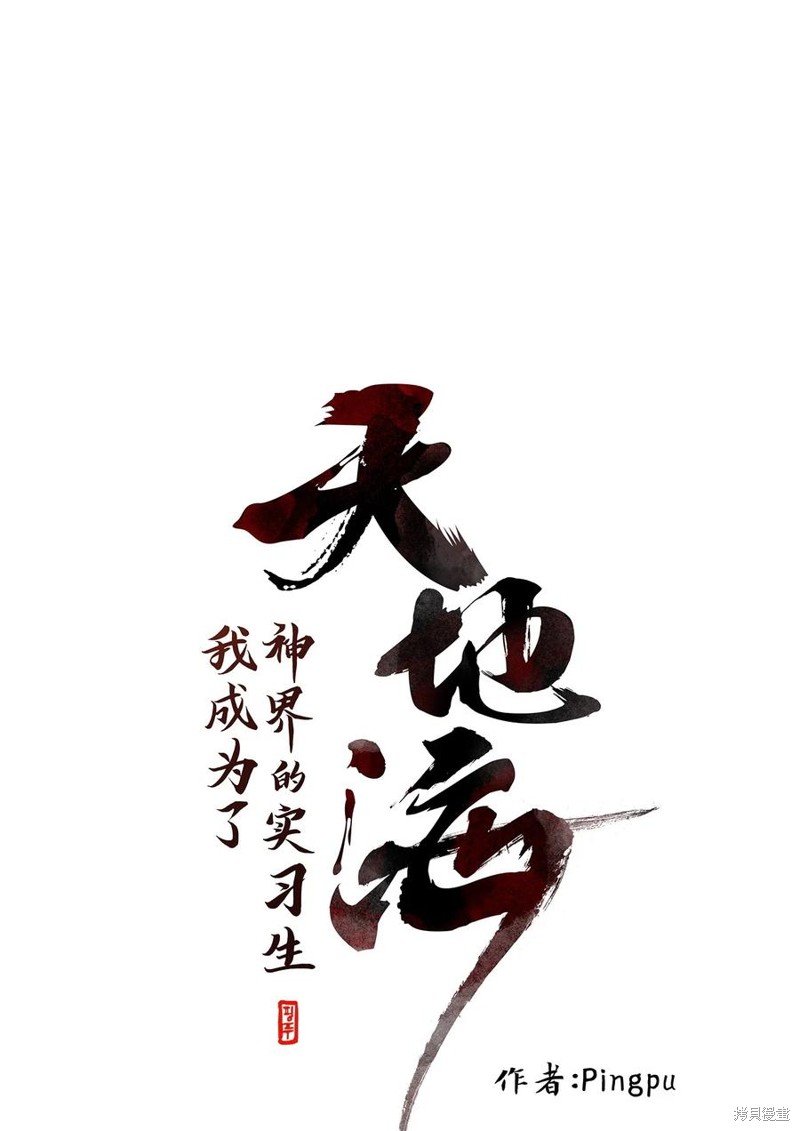 天地海
我成为了
神界的实习生
핑푸
作者:Pingpu
拷貝漫畫